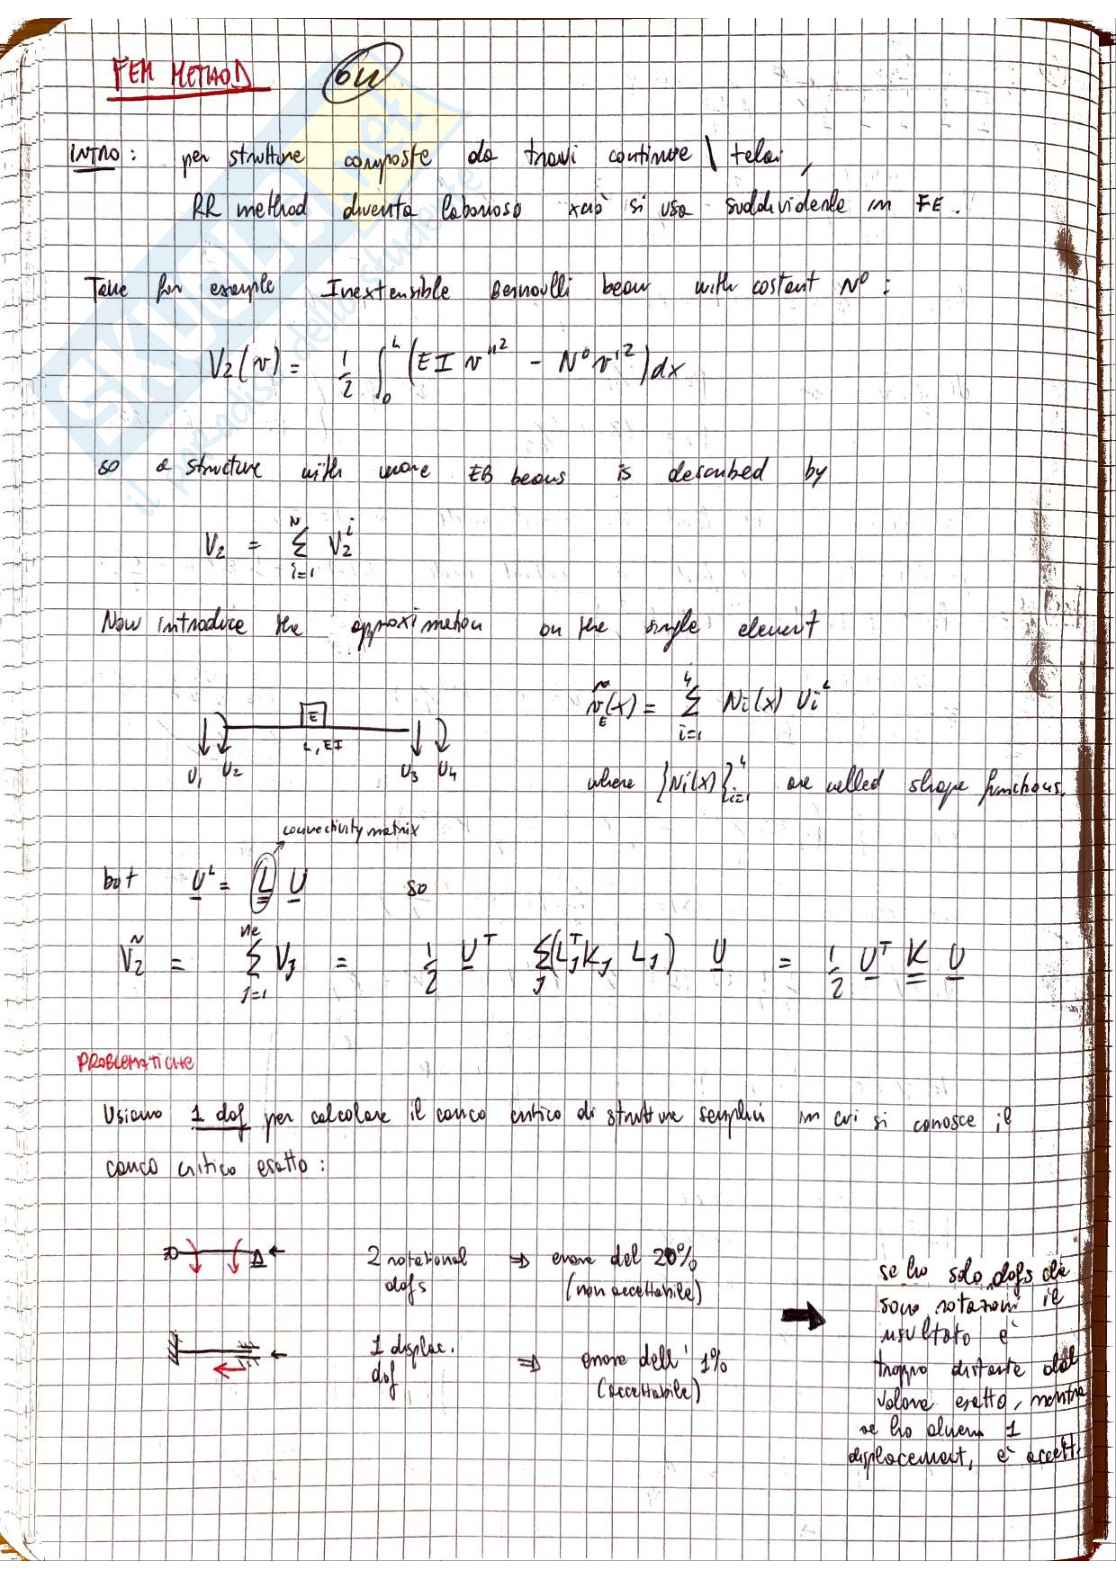 FEM METHOD
INTRO : per strutture composte da travi continue \ telai,
RR method diventa laborioso xciò si usa suddividerle in FE.
Take for example Inextensible Bernoulli beam with costant N⁰ :
V₂(v) = 1/2 ∫₀ᴸ (EI v''² - N⁰v'²)dx
so a structure with more EB beams is described by
V₂ = Σᵢ₌₁ᴺ V₂ⁱ
Now introduce the approximation on the single element
ṽ_E(x) = Σᵢ₌₁⁴ Ni(x) Uiᴸ
E
L, EI
U₁ U₂ U₃ U₄
where {Ni(x)}ᵢ₌₁⁴ are called shape functions.
connectivity matrix
but Uᴸ = L U so
Ṽ₂ = Σⱼ₌₁ⁿᵉ Vⱼ = 1/2 Uᵀ Σⱼ(LⱼᵀKⱼ Lⱼ) U = 1/2 Uᵀ K U
PROBLEMATICHE
Usiamo 1 dof per calcolare il carico critico di strutture semplici in cui si conosce il
carico critico esatto :
2 rotational
dofs
⇒ errore del 20%
(non accettabile)
1 displac.
dof
⇒ errore dell' 1%
(accettabile)
se ho solo dofs che
sono rotazioni il
risultato è
troppo distante dal
valore esatto, mentre
se ho almeno 1
displacement, è accett.